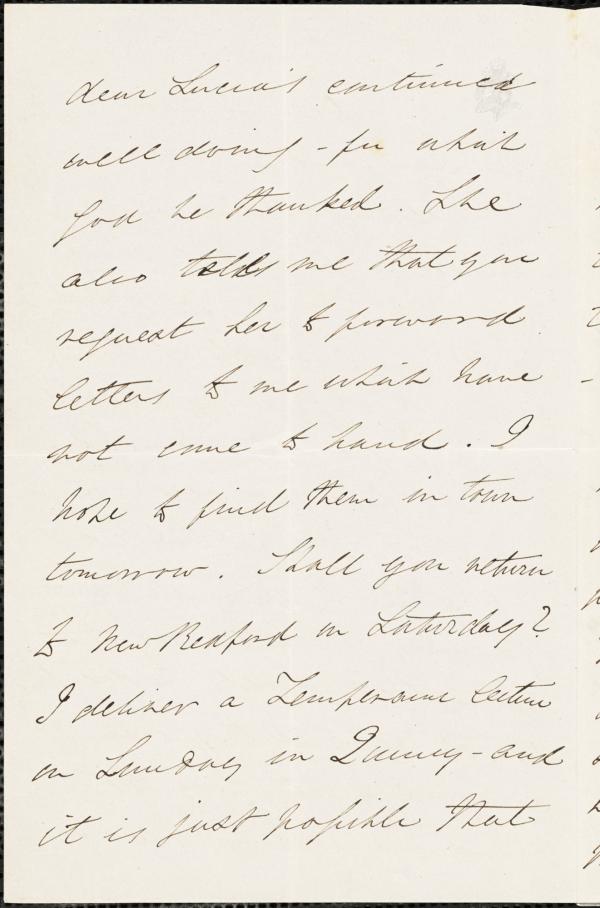 dear Lucia's continued
well doing - for which
God be thanked. She
also tells me that you
request her to forward
letters to me which have
not come to hand. I
hope to find them in town
tomorrow. Shall you return
to New Bedford on Saturday?
I deliver a Temperance lecture
on Sunday in Quincy - and
it is just possible that